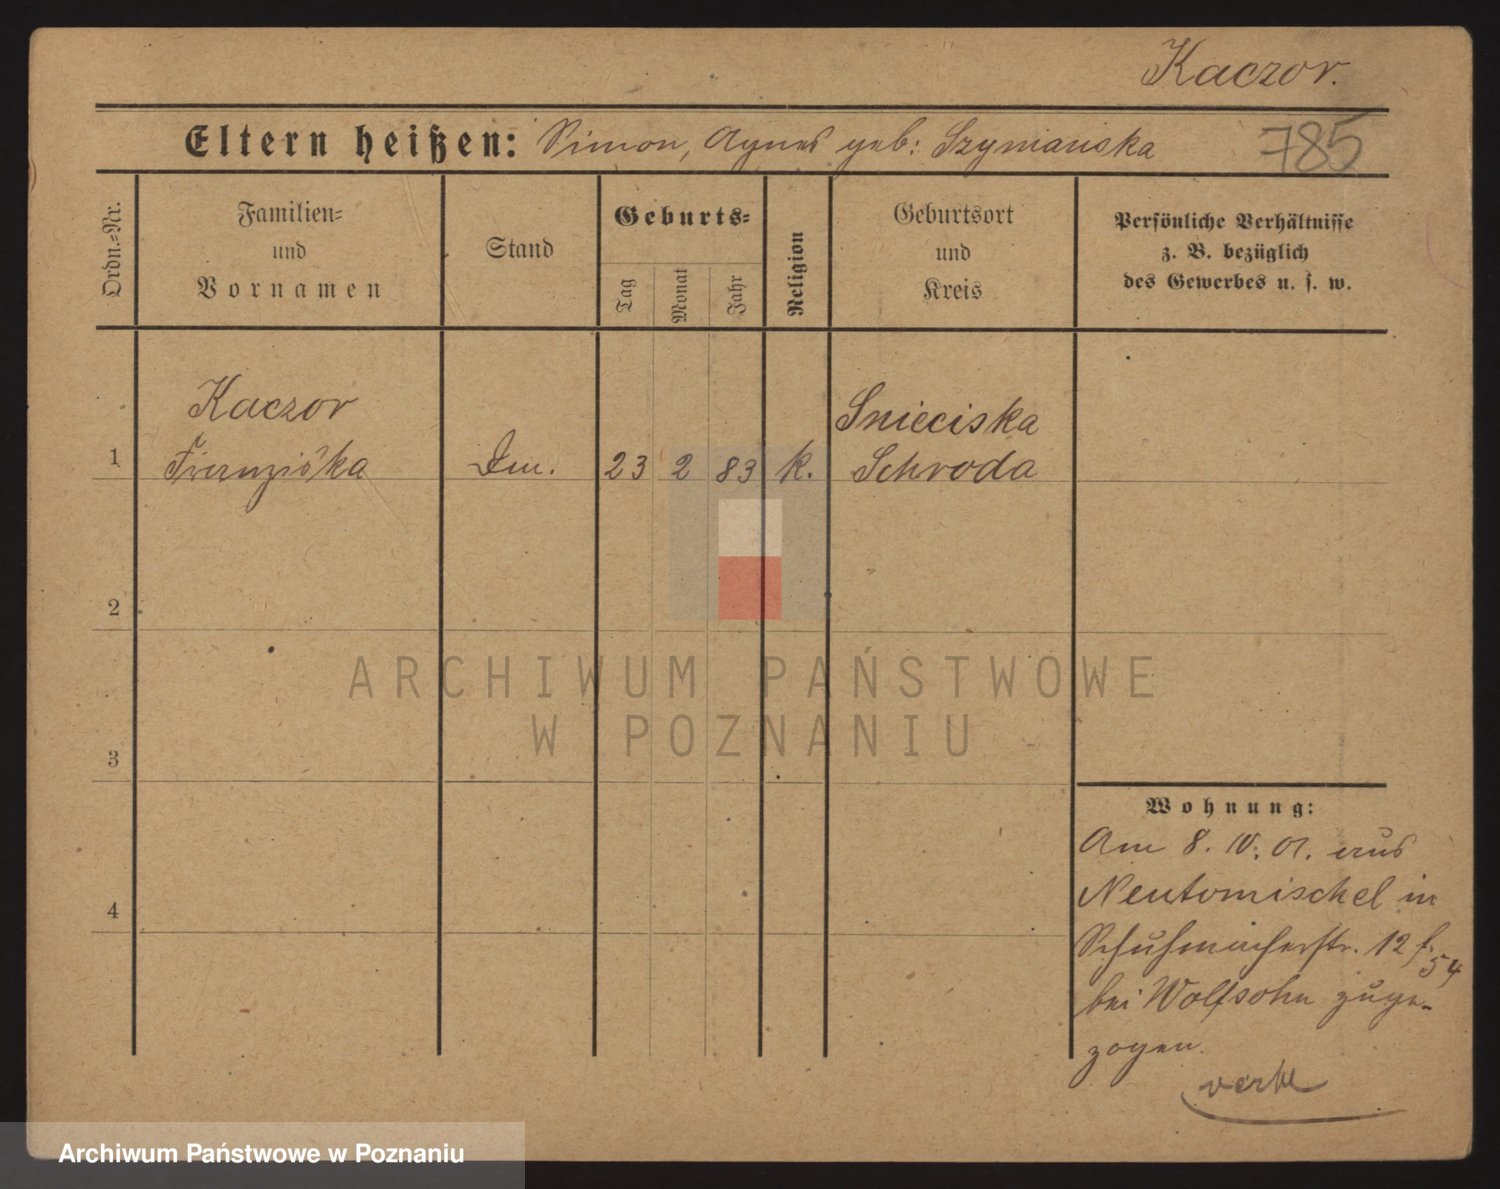 Kaczor.
Eltern heißen: Simon, Agnes geb: Szymanska 785
Ordn.=Nr.
Familien=
und
Vornamen
Stand
Geburts=
Tag
Monat
Jahr
Religion
Geburtsort
und
Kreis
Persönliche Verhältnisse
z. B. bezüglich
des Gewerbes u. s. w.
Kaczor Snieciska
1 Franziska 23 2 83 k. Schroda
2
3
4
Wohnung:
Am 8. IV. 01. aus
Neutomischel in
Schuhmacherstr. 12
bei Wolfsohn zuge-
zogen.
ARCHIWUM PAŃSTWOWE
W POZNANIU
Archiwum Państwowe w Poznaniu